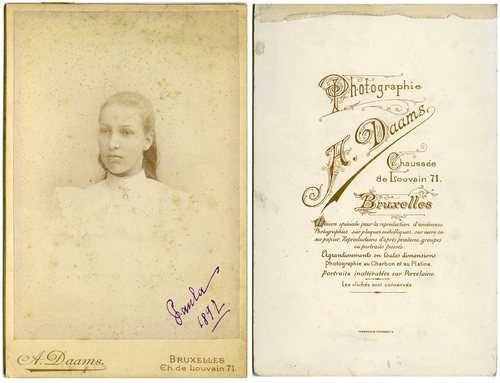 Paula
1892
A. Daams.
BRUXELLES
Ch. de Louvain 71.
Photographie
A. Daams.
Chaussée
de Louvain 71.
Bruxelles
Maison spéciale pour la reproduction d'anciennes
Photographies sur plaques métalliques, sur verre ou
sur papier, Reproductions d'après peintures, groupes
ou portraits passés.
Agrandissements en toutes dimensions
Photographie au Charbon et au Platine.
Portraits inaltérables sur Porcelaine.
Les clichés sont conservés.